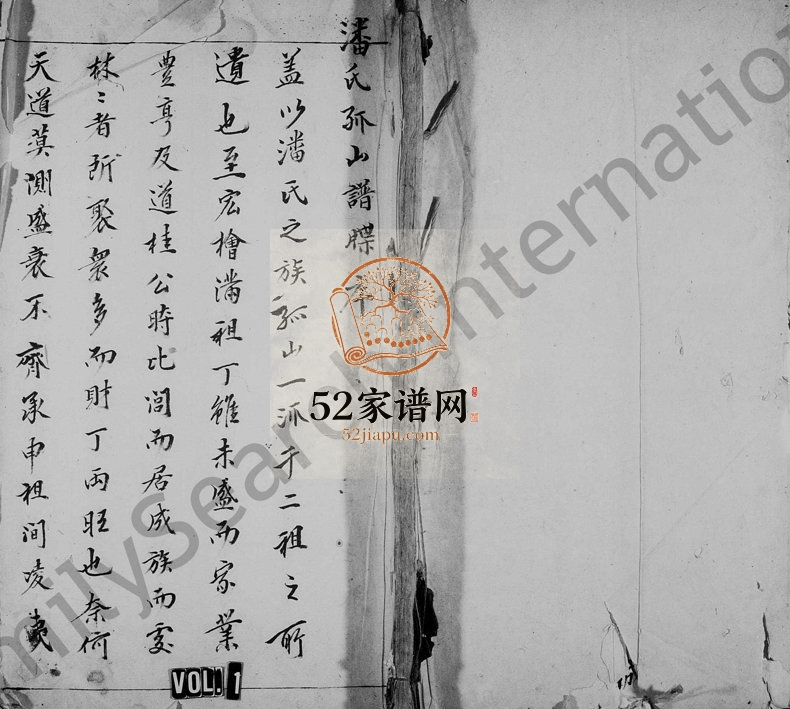 潘氏孤山譜牒序
蓋以潘氏之族孤山一派千二祖之所
遺也至宏檜滿祖丁雖未盛而家業
豐亨及道桂公時比閭而居成族而處
林〻者所聚衆多而財丁两旺也奈何
天道莫測盛衰不齊承申祖间凌夷
52家谱网
52jiapu.com
VOL. 1
milySearch International